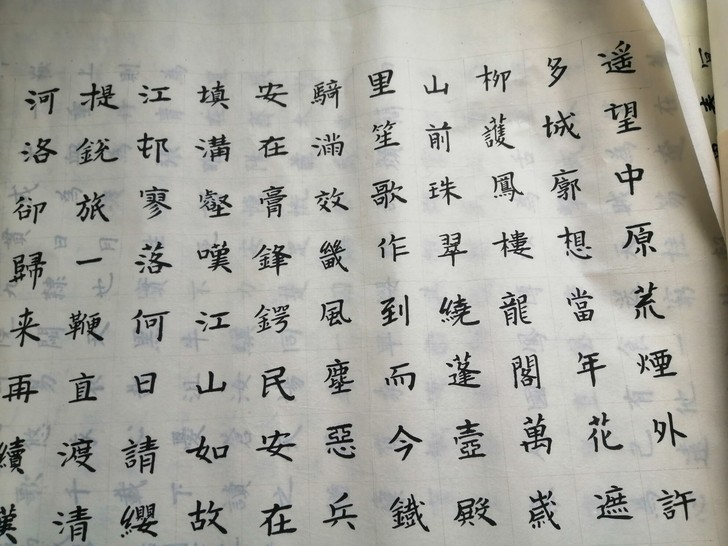 遥望中原荒煙外許
多城廓想當年花遮
柳護鳳樓龍閣萬歲
山前珠翠繞蓬壺殿
里笙歌作到而今鐵
騎滿效畿風塵惡兵
安在膏鋒鍔民安在
填溝壑嘆江山如故
江邨寥落何日請纓
提鋭旅一鞭直渡清
河洛卻歸来再續漢